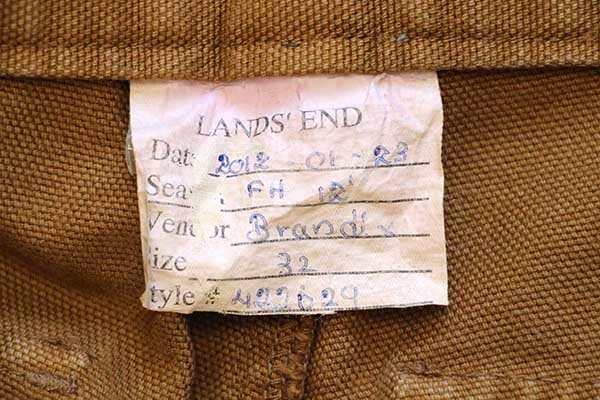 LANDS' END
Dat 2012-01-23
Sea FH 12'
Vendor Brandix
ize 32
tyle # 422629